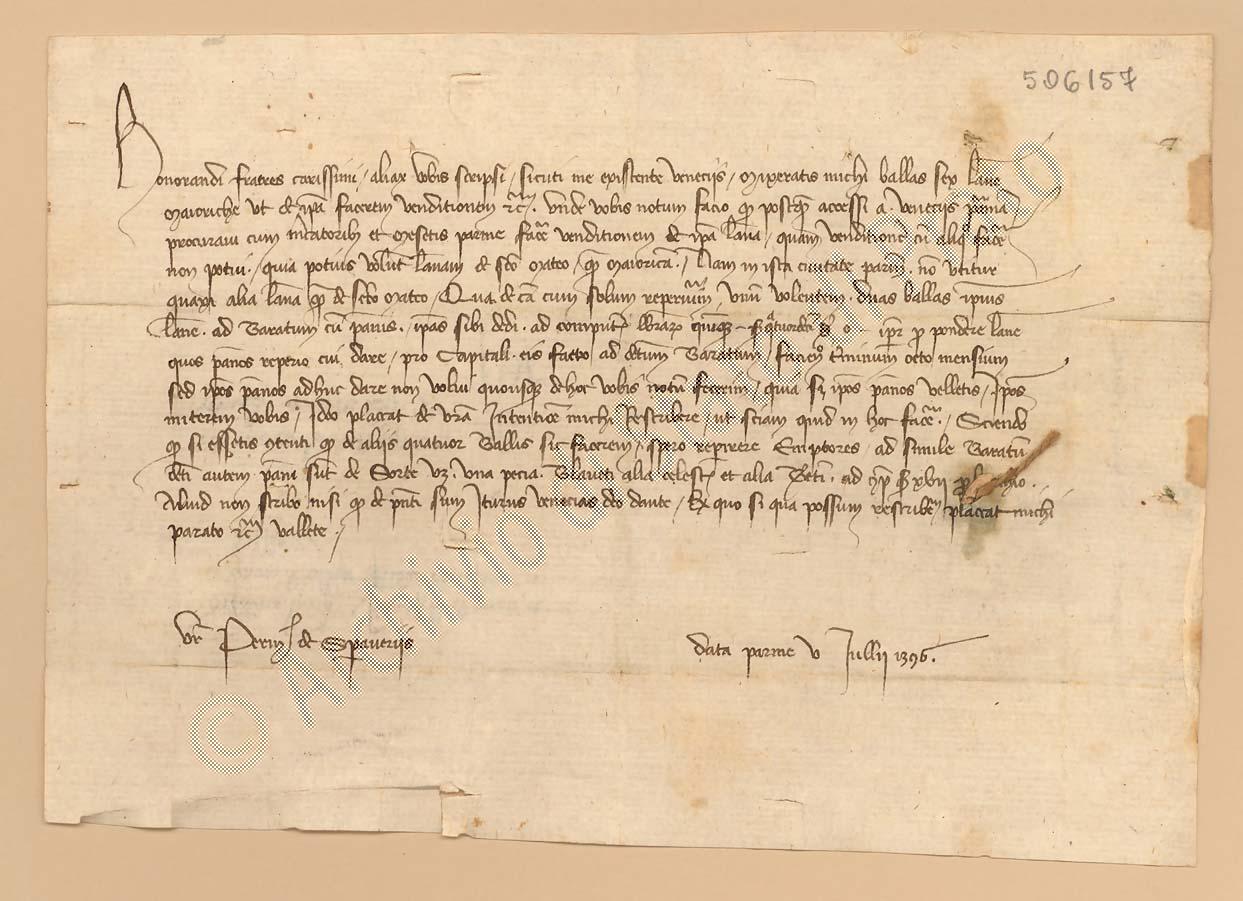 506157
Honorandi fratres carissimi / alias vobis scripsi / sicuti me existente veneciis / mixeratis michi ballas sex lane
maioriche ut de ipa facerem venditionem etc. unde vobis notum facio qd postq accessi a veneciis parmam
procuravi cum mcatorib et mesetis parme face venditionem de ipa lana / quam venditione cu aliq face
non potui / quia potius volut lanam de sco mateo / qm maioricha / Nam in ista civitate parm. no utitur
quaxi alia lana qm de scto mateo / Qua de ca cum solum reperiverim unu volentem duas ballas ipius
lane ad baratum cu panis. ipas sibi dedi ad computu librar quinque pro pondere lane
quos panos reperio cui dare / pro capitali eis facto ad dctum baratum / faciendo terminum octo mensium
sed ipos panos adhuc dare non volui quousque de hoc vobis notu fecerim / quia si ipos panos velletis / ipos
miterem vobis / Ideo placeat de vra intentione michi rescribere / ut sciam quid in hoc face / Sciendo
qd si essetis contenti qd de aliis quatuor ballis sic facerem / spero reperire emptores ad simile baratu
dcti autem pani sut de sorte vz. una pecia blaveti alia celest et alia
Aliud non scribo nisi qd de pnti sum iturus venecias deo dante / Ex quo si qua possum rescribe placeat michi
parato etc. vallete /
vr Perin de Spaveriis
data parme v Jullii 1396.
© Archivio di Stato di Prato